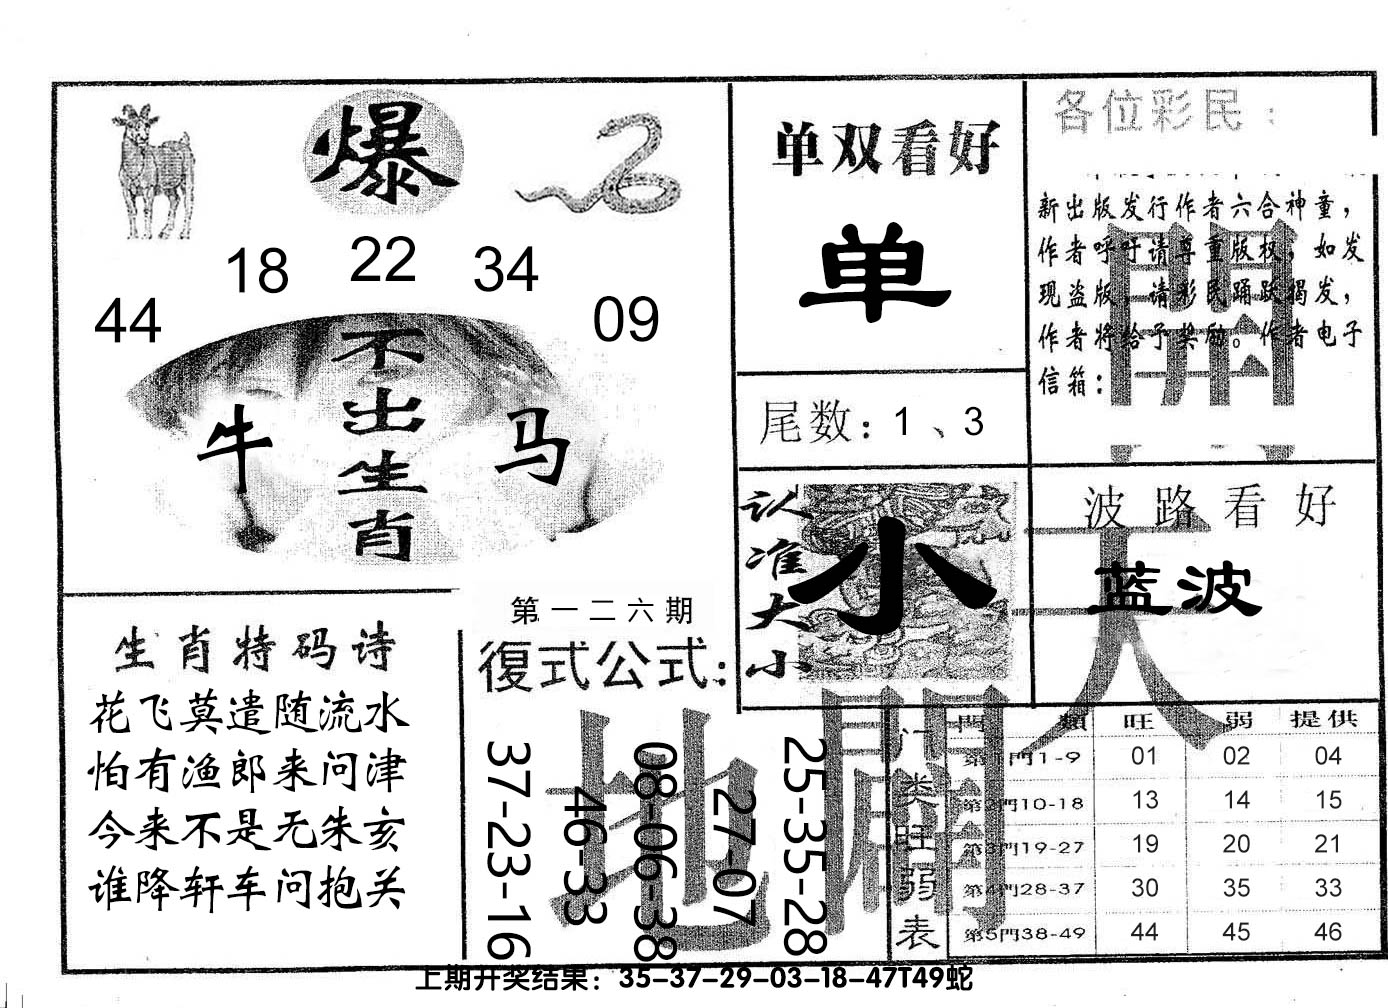 爆
44 18 22 34 09
不出生肖
牛 马
单双看好
单
尾数：1、3
各位彩民：
新出版发行作者六合神童，
作者呼吁请尊重版权，如发
现盗版，请彩民踊跃揭发，
作者将给予奖励。作者电子
信箱：
開
认准大小
小
波路看好
蓝波
天
生肖特码诗
花飞莫遣随流水
怕有渔郎来问津
今来不是无朱亥
谁降轩车问抱关
第一二六期
復式公式：
37-23-16
46-33
08-06-38
27-07
25-35-28
地
闢
门类旺弱表
門類 旺 弱 提供
第1門1-9 01 02 04
第2門10-18 13 14 15
第3門19-27 19 20 21
第4門28-37 30 35 33
第5門38-49 44 45 46
上期开奖结果：35-37-29-03-18-47T49蛇